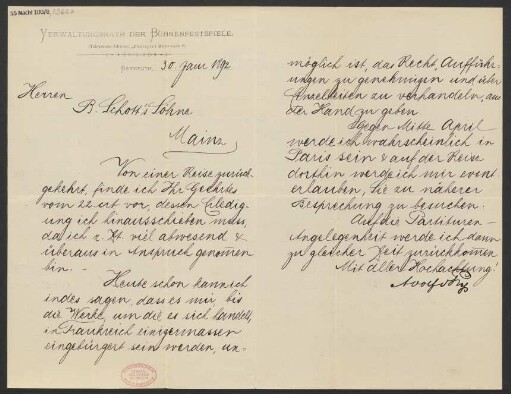 55 Nachl 100/B,
VERWALTUNGSRATH DER BÜHNENFESTSPIELE.
BAYREUTH, 30. Janr 1892
Herren
B. Schott's Söhne
Mainz
Von einer Reise zurück
gekehrt, finde ich Ihr Geehrtes
vom 22. crt vor, dessen Erledig-
ung ich hinausschieben muss,
da ich z. Zt. viel abwesend &
überaus in Anspruch genomen
bin. –
Heute schon kann ich
indes sagen, dass es mir, bis
die Werke, um die es sich handelt,
in Frankreich einigermassen
eingebürgert sein werden, un-
möglich ist, das Recht, Aufführ-
ungen zu genehmigen und über
Einzelheiten zu verhandeln, aus
der Hand zu geben.
Gegen Mitte April
werde ich wahrscheinlich in
Paris sein & auf der Reise
dorthin werde ich mir event
erlauben, Sie zu näherer
Besprechung zu besuchen.
Auf die Partituren-
Angelegenheit werde ich dann
zu gleicher Zeit zurückkomen.
Mit aller Hochachtung!